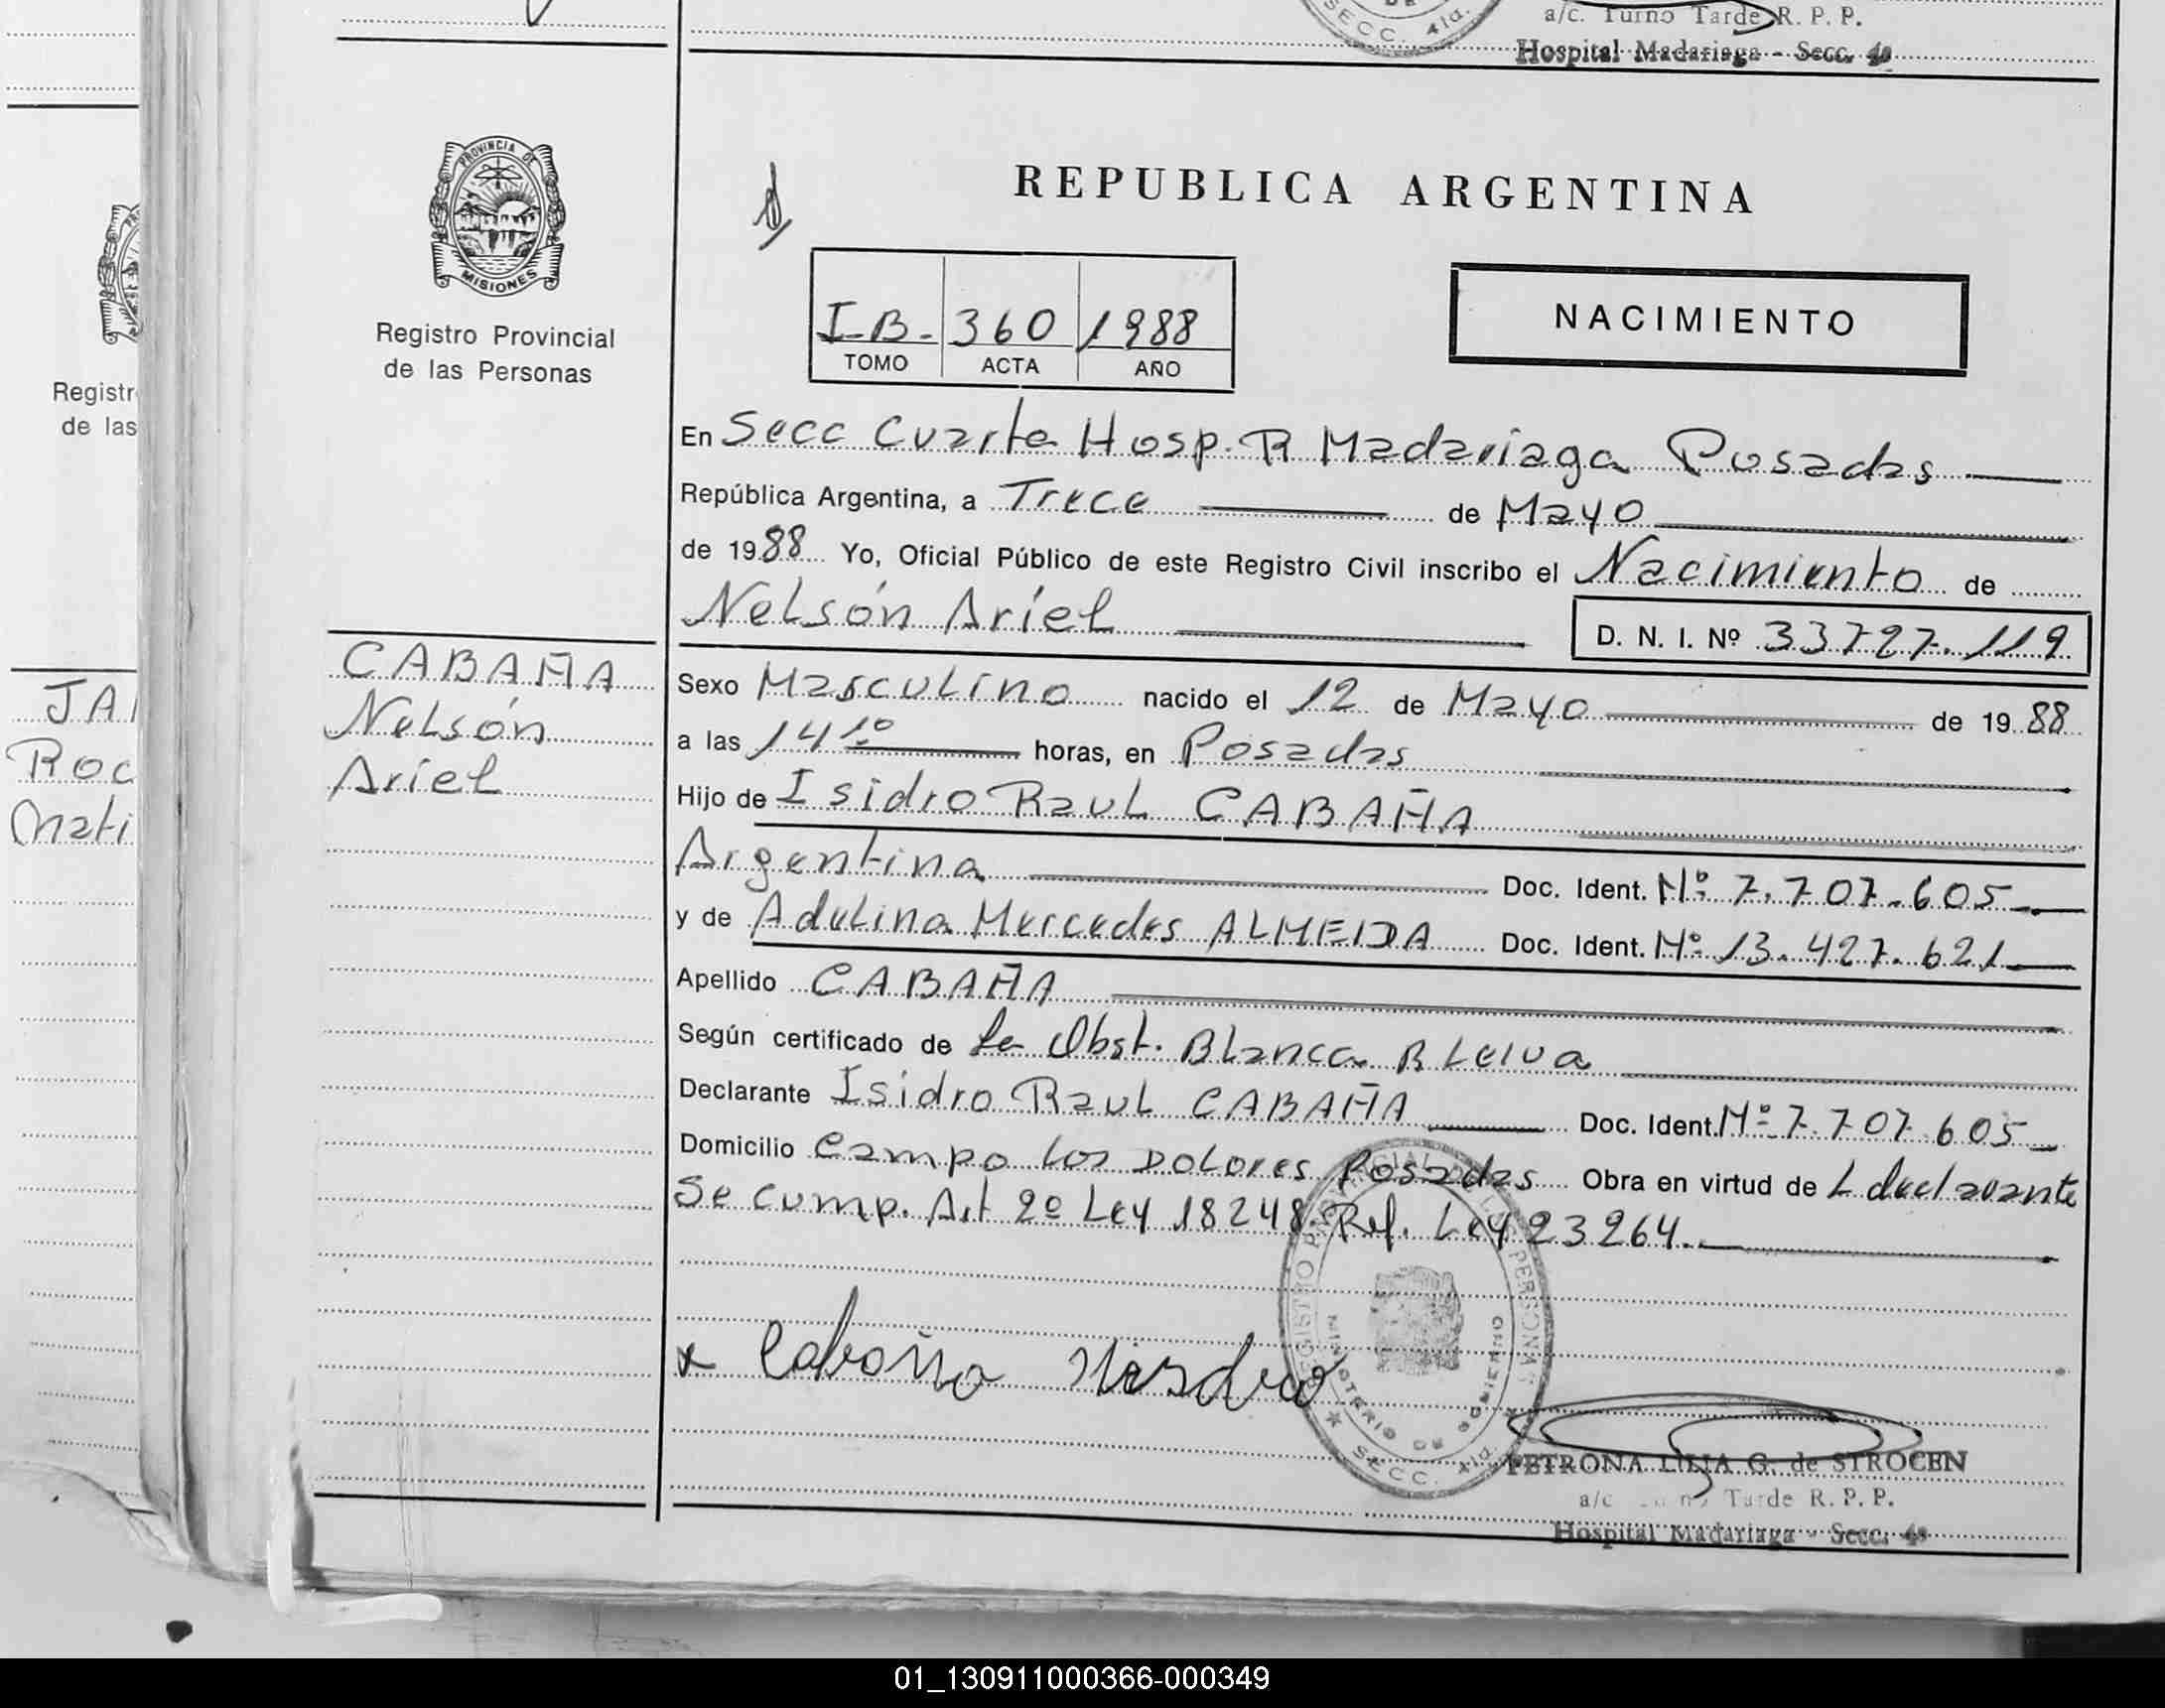 SECC. 4ta.
a/c. Turno Tarde R. P. P.
Hospital Madariaga - Secc. 4º
PROVINCIA DE
MISIONES
Registro Provincial
de las Personas
REPUBLICA ARGENTINA
I-B- 360 1988
TOMO ACTA AÑO
NACIMIENTO
En Secc Cuarta Hosp. R Madariaga Posadas
República Argentina, a Trece de Mayo
de 1988 Yo, Oficial Público de este Registro Civil inscribo el Nacimiento de
Nelsón Aríel
D. N. I. Nº 33727.119
CABAÑA
Nelsón
Aríel
Sexo Masculino nacido el 12 de Mayo de 1988
a las 14 10 horas, en Posadas
Hijo de Isidro Raul CABAÑA
Argentina Doc. Ident. Nº 7.707.605
y de Adelina Mercedes ALMEIDA Doc. Ident. Nº 13.427.621
Apellido CABAÑA
Según certificado de La Obst. Blanca R Leiva
Declarante Isidro Raul CABAÑA Doc. Ident. Nº 7.707.605
Domicilio Campo Los Dolores Posadas Obra en virtud de L declarante
Se cump. Art 2º Ley 18248. Ref. Ley 23264.
REGISTRO PROVINCIAL DE LAS PERSONAS
MINISTERIO DE GOBIERNO
SECC. 4ta.
x Cabaña
PETRONA LIJIA G. de STROCEN
a/c Turno Tarde R. P. P.
Hospital Madariaga - Secc. 4º
Registr
de las
JA
Roc
Mati
01_130911000366-000349